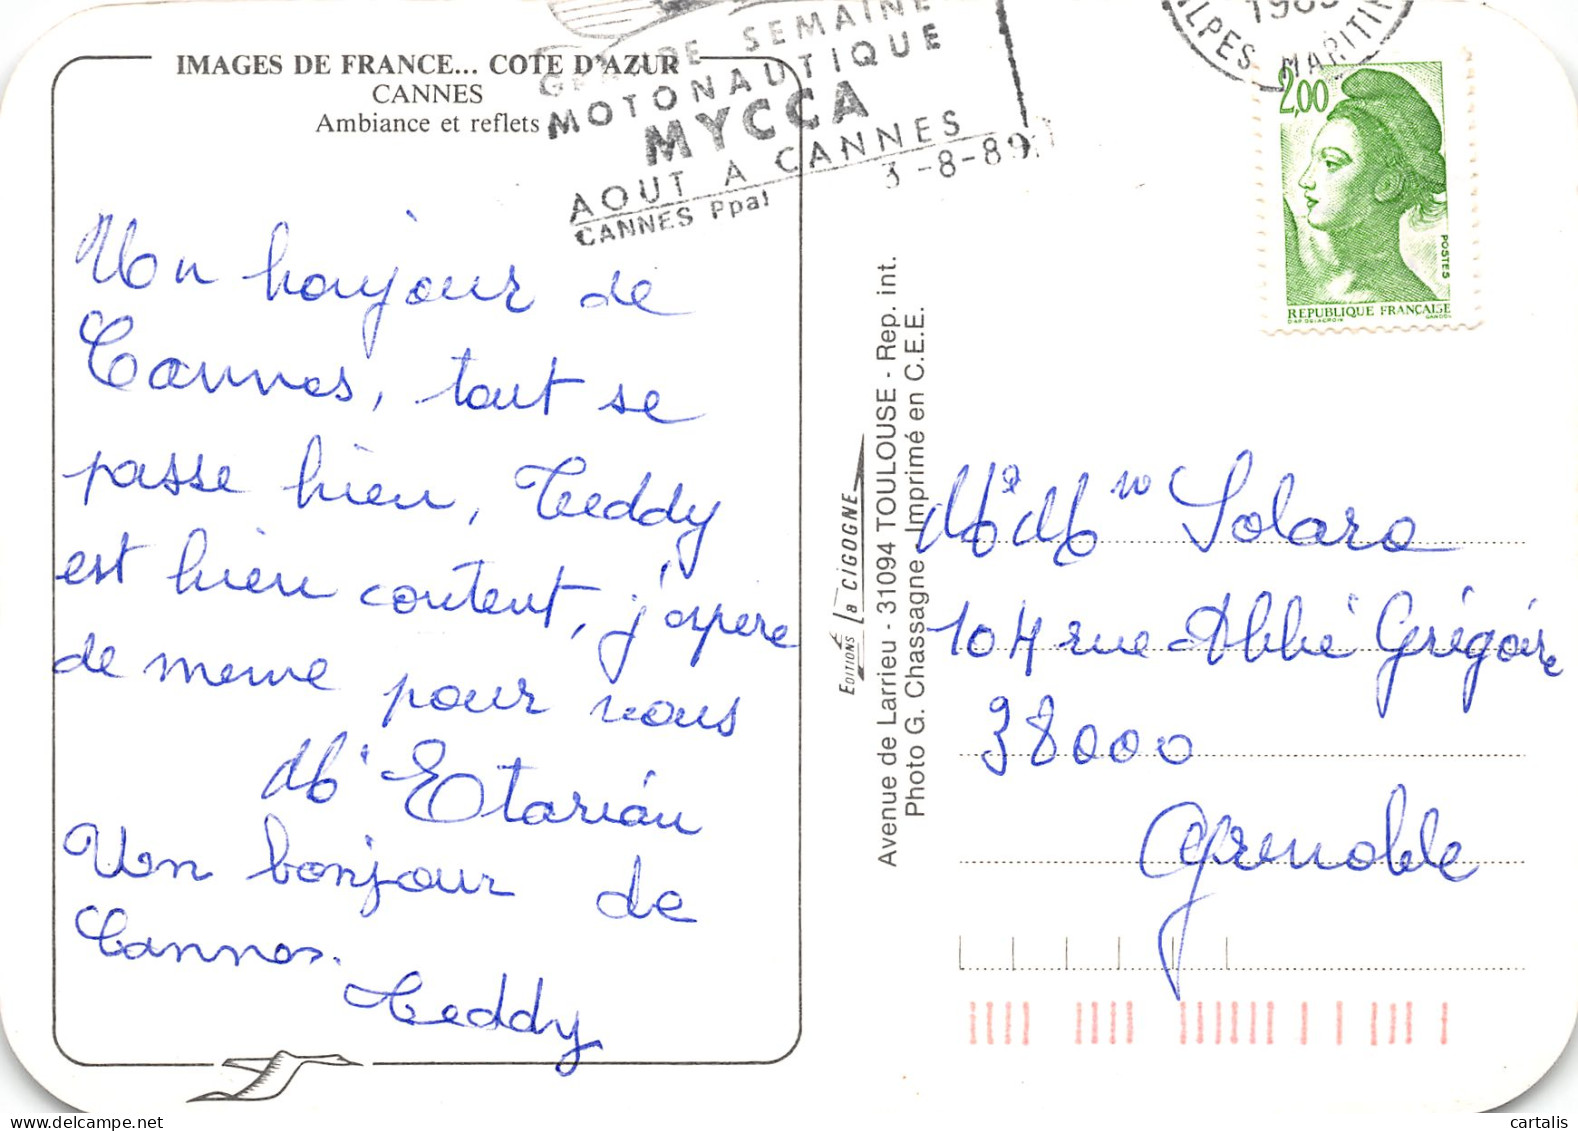 IMAGES DE FRANCE... COTE D'AZUR
CANNES
Ambiance et reflets
GRANDE SEMAINE
MOTONAUTIQUE
MYCCA
AOUT A CANNES
CANNES Ppal
3-8-89
ALPES MARITIMES
2,00
POSTES
REPUBLIQUE FRANÇAISE
Un bonjour de
Cannes, tout se
passe bien, Teddy
est bien content, j'espere
de meme pour vous
Etarian
Un bonjour de
Cannes.
Teddy
EDITIONS La CIGOGNE
Avenue de Larrieu - 31094 TOULOUSE - Rep. int.
Photo G. Chassagne Imprimé en C.E.E.
Solara
104 rue Abbé Grégoire
38000
Grenoble
cartalis